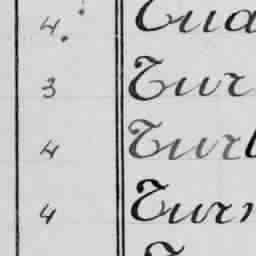 4. Tua
3 Tur
4 Turb
4 Turn